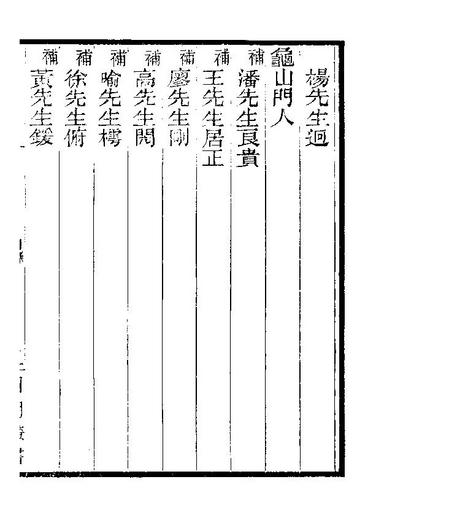 楊先生迥
龜山門人
補潘先生良貴
補王先生居正
補廖先生剛
補高先生閌
補喻先生樗
補徐先生俯
補黃先生鍰